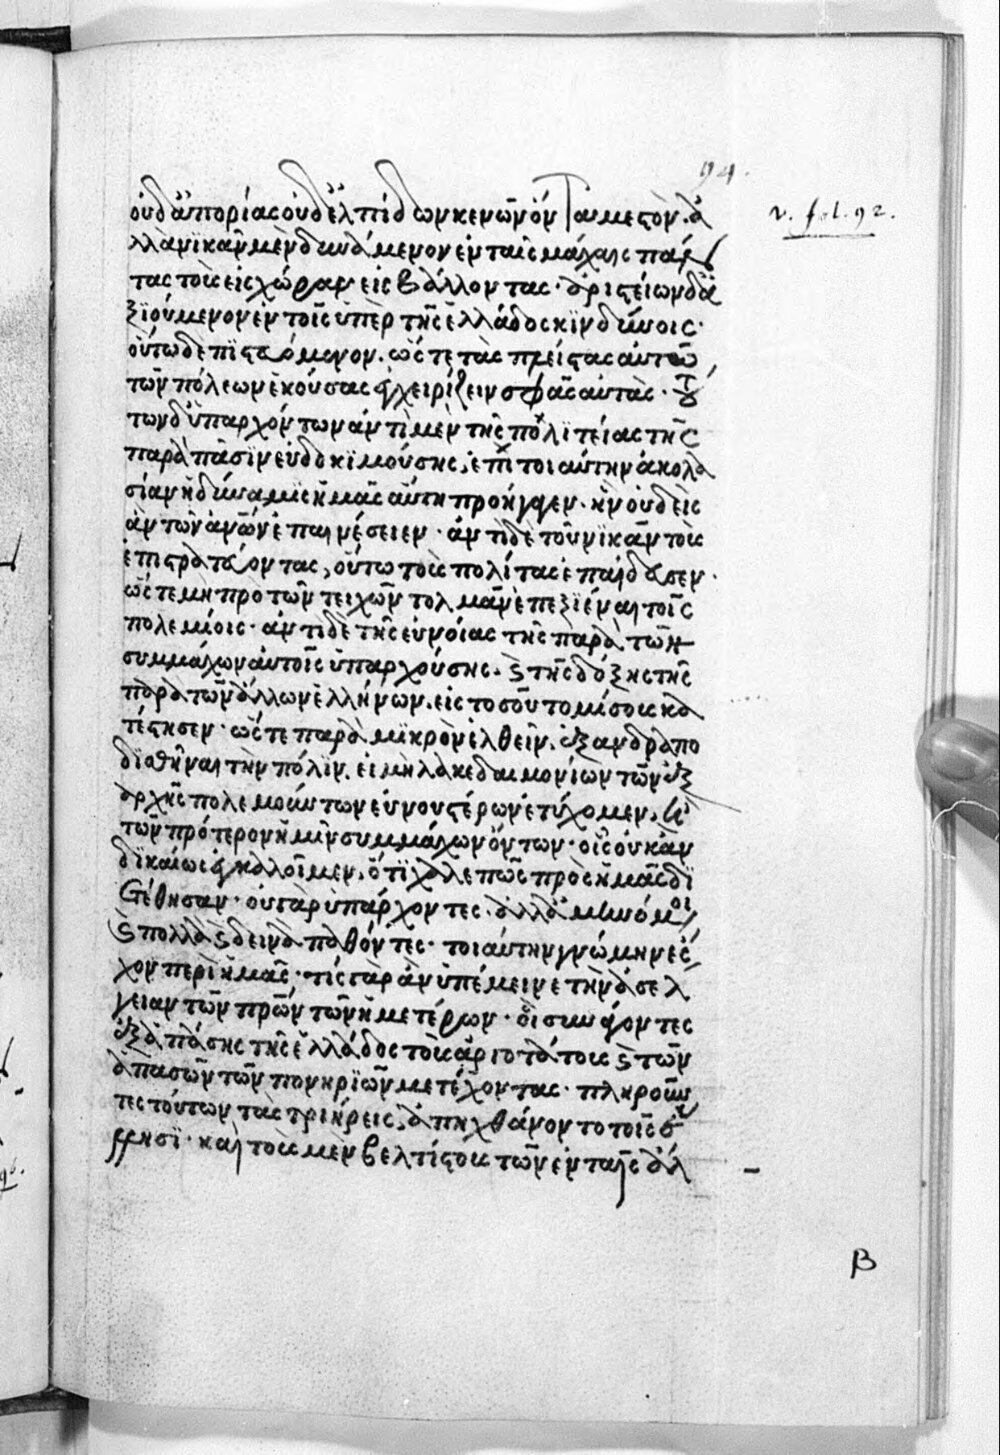 94.
ν. fol. 92.
οὐδ' ἀπορίας οὐδ' ἐλπίδων κενῶν ὄντα μεστὸν. ἀ
λλὰ νϊκᾶν μὲν δυνάμενον ἐν ταῖς μάχαις πάν
τας τοὺς εἰς χώραν εἰσβάλλοντας· ἀριστείων δ' ἀ
ξϊούμενον ἐν τοῖς ὑπὲρ τῆς ἑλλάδος κϊνδύνοις·
οὕτω δὲ πϊστευόμενον. ὥστε τὰς πλείστας αὐτῶ
τῶν πόλεων ἑκούσας ἐγχειρίζειν σφᾶς αὐτὰς· τού
των δ' ὑπαρχόντων ἀντὶ μὲν τῆς πολϊτείας τῆς
παρὰ πᾶσϊν εὐδοκϊμούσης, ἐπὶ τοιαύτην ἀκολα
σίαν ἡ δύναμϊς ἡμᾶς αὕτη προήγαγεν. ἣν οὐδεὶς
ἂν τῶν ἀνων ἐπαινέσειεν· ἀντὶ δὲ τοῦ νϊκᾶν τοὺς
ἐπιστρατεύοντας, οὕτω τοὺς πολίτας ἐπαίδευσεν·
ὥστε μὴ πρὸ τῶν τειχῶν τολμᾶν ἐπεξϊέναι τοῖς
πολεμίοις· ἀντὶ δὲ τῆς εὐνοίας τῆς παρὰ τῶν
συμμάχων αὐτοῖς ὑπαρχούσης. ϛ τῆς δόξης τῆς
παρὰ τῶν ἄλλων ἑλλήνων. εἰς τοσοῦτο μίσους κα
τέστησεν· ὥστε παρὰ μϊκρὸν ἐλθεῖν. ἐξανδραπο
δϊσθῆναι τὴν πόλϊν. εἰ μὴ λακεδαιμονίων τῶν ἐξ
ἀρχῆς πολεμούντων εὐνουστέρων ἐτύχομεν, ἢ
τῶν πρότερον ἡμῖν συμμάχων ὄντων· οἷς οὐκ ἂν
δϊκαίως ἐγκαλοῖμεν, ὅτϊ χαλεπῶς πρὸς ἡμᾶς δϊ
ετέθησαν· οὐ γὰρ ὑπάρχοντες. ἀλλ' ἀμυνόμοι,
ϛ πολλὰ ϛ δεινὰ παθόντες· τοιαύτην γνώμην ἔς
χον περὶ ἡμᾶς· τίς γὰρ ἂν ὑπέμεινε τὴν ἀσέλ
γειαν τῶν πρων τῶν ἡμετέρων· οἳ συνάγοντες
ἐξ ἁπάσης τῆς ἑλλάδος τοὺς ἀργοτάτους ϛ τῶν
ἁπασῶν τῶν πονηρϊῶν μετέχοντας· πληροῦν
τες τούτων τὰς τριήρεις, ἀπηχθάνοντο τοῖς ἕ
λλησϊ· καὶ τοὺς μὲν βελτίστους τῶν ἐν ταῖς ἀλ
β